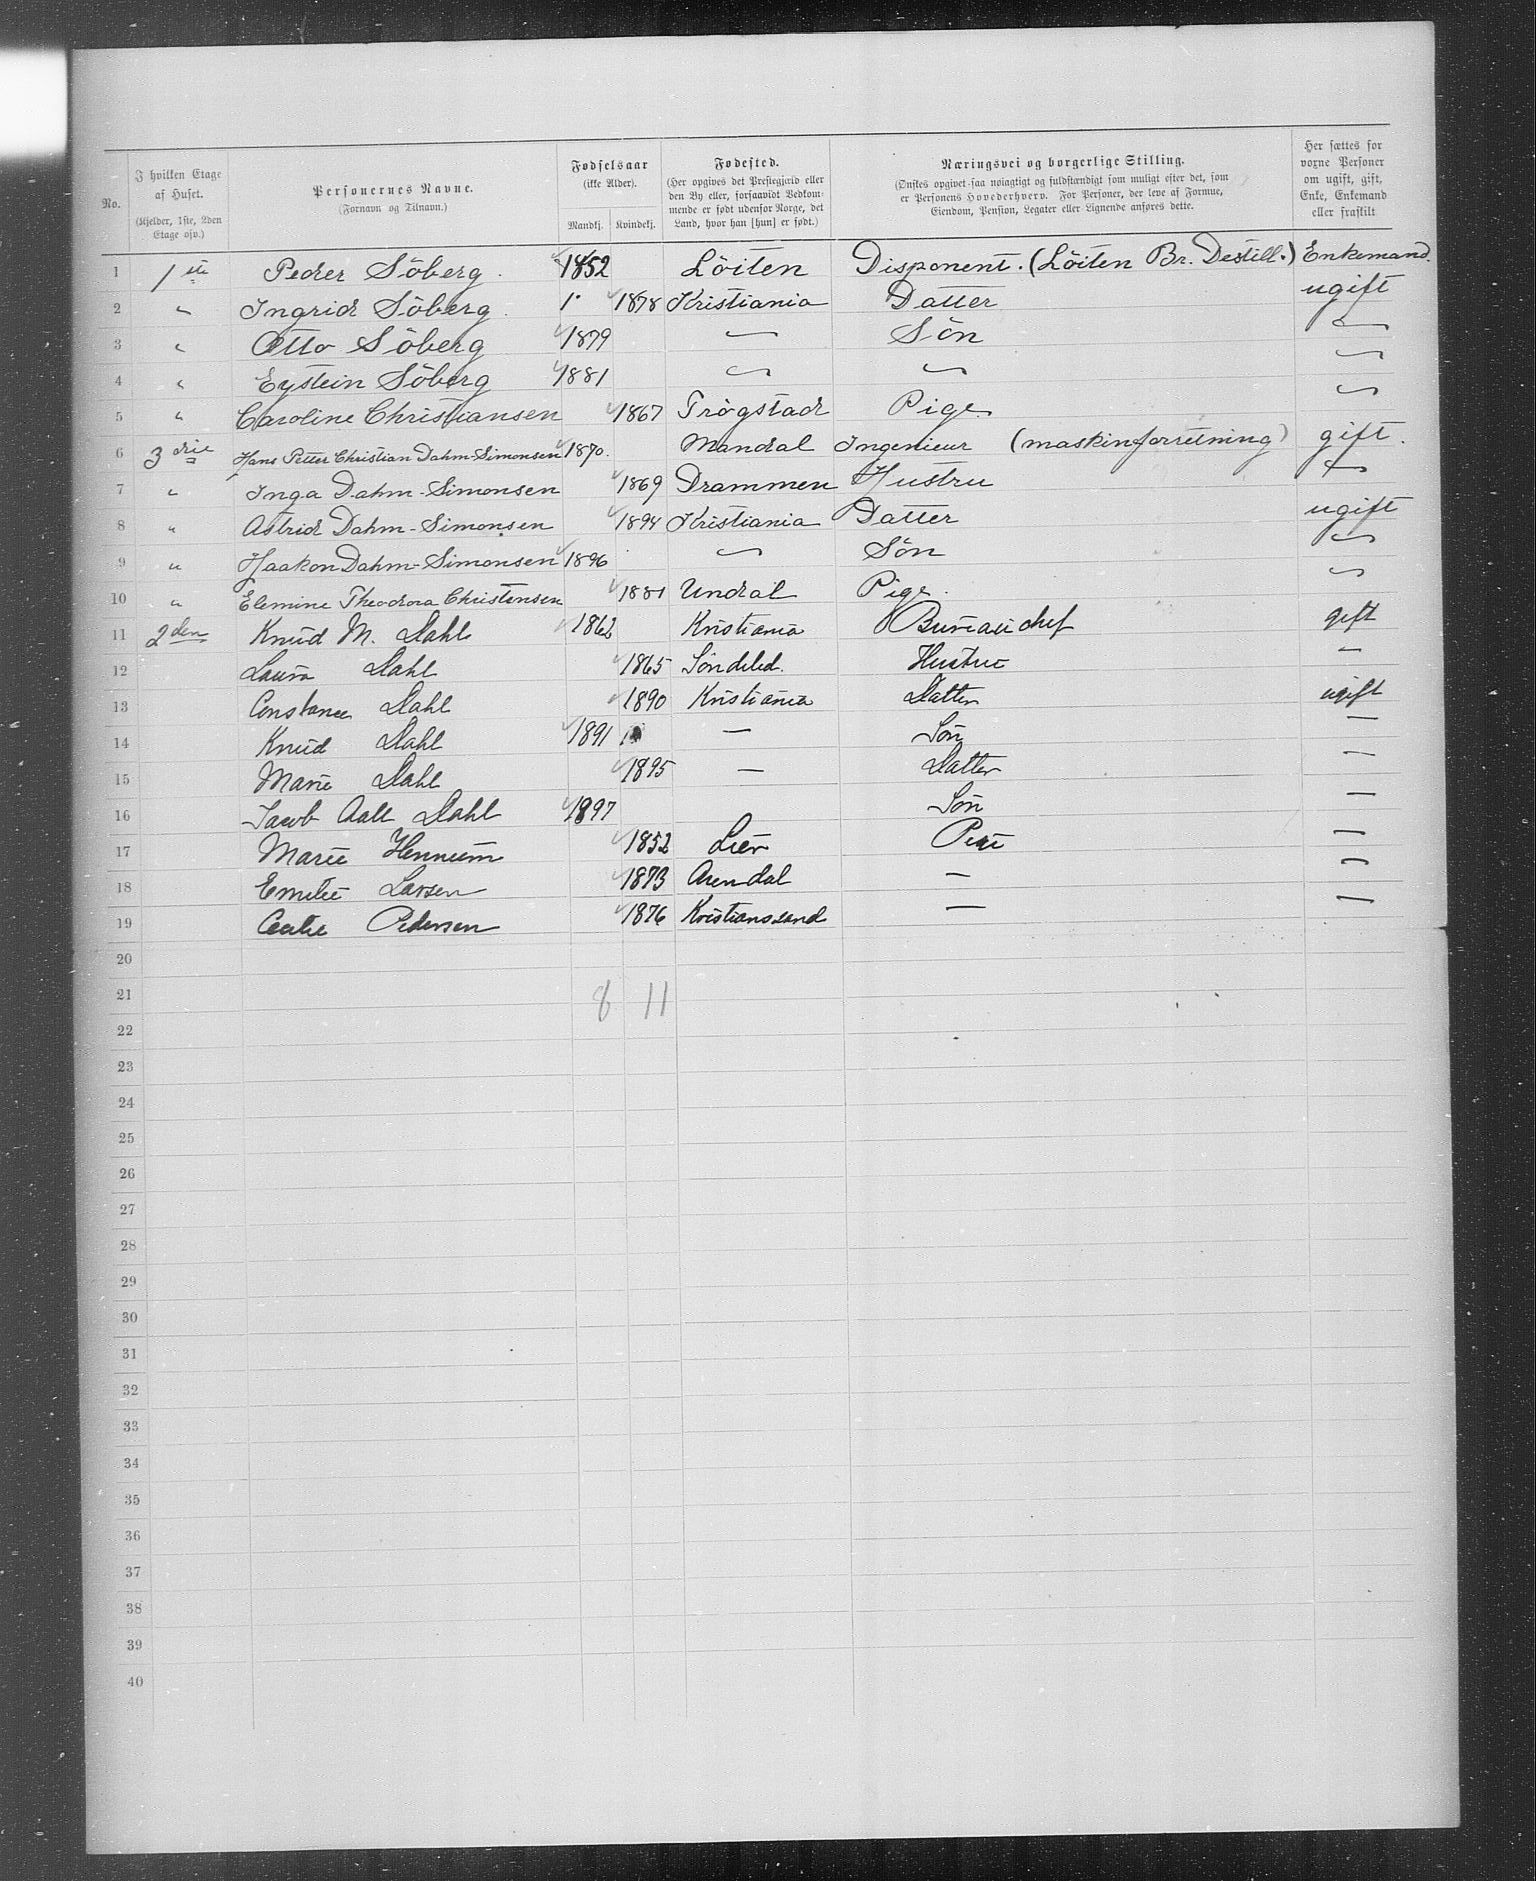 No. | I hvilken Etage af Huset. (Kjelder, 1ste, 2den Etage osv.) | Personernes Navne. (Fornavn og Tilnavn.) | Fødselsaar (ikke Alder). Mandkj. | Kvindekj. | Fødested. (Her opgives det Prestegjæld eller den By eller, forsaavidt Vedkommende er født udenfor Norge, det Land, hvor han [hun] er født.) | Næringsvei og borgerlige Stilling. (Ønskes opgivet saa nøiagtigt og fuldstændigt som muligt efter det, som er Personens Hovederhverv. For Personer, der leve af Formue, Eiendom, Pension, Legater eller Lignende anføres dette. | Her sættes for voxne Personer om ugift, gift, Enke, Enkemand eller fraskilt
1 | 1ste | Peder Söberg. | 1852 | | Löiten | Disponent. (Löiten Br. Destill.) | Enkemand.
2 | " | Ingrid Söberg. | 1· | 1878 | Kristiania | Datter | ugift
3 | " | Otto Söberg | 1879 | | — | Sön | —
4 | " | Eystein Söberg | 1881 | | — | — | —
5 | " | Caroline Christiansen | | 1867 | Trögstad | Pige | —
6 | 3die | Hans Petter Christian Dahm-Simonsen | 1870. | | Mandal | Ingenieur (maskinforretning) | gift.
7 | " | Inga Dahm-Simonsen | | 1869 | Drammen | Hustru | —
8 | " | Astrid Dahm-Simonsen | | 1894 | Kristiania | Datter | ugift
9 | " | Haakon Dahm-Simonsen | 1896 | | — | Sön | —
10 | " | Elemine Theodora Christensen | | 1881 | Undal | Pige. | —
11 | 2den | Knud M. Dahl | 1862 | | Kristiania | Bureauchef | gift
12 | | Laura Dahl | | 1865 | Söndeled. | Hustru | —
13 | | Constance Dahl | | 1890 | Kristiania | Datter | ugift
14 | | Knud Dahl | 1891 | | — | Sön | —
15 | | Marie Dahl | | 1895 | — | Datter | —
16 | | Jacob Aall Dahl | 1897 | | | Sön | —
17 | | Marie Hennum | | 1852 | Lier | Pige | —
18 | | Emilie Larsen | | 1873 | Arendal | — | —
19 | | Cecilie Pedersen | | 1876 | Kristianssand | — | —
20
21 | | | 8 | 11
22
23
24
25
26
27
28
29
30
31
32
33
34
35
36
37
38
39
40